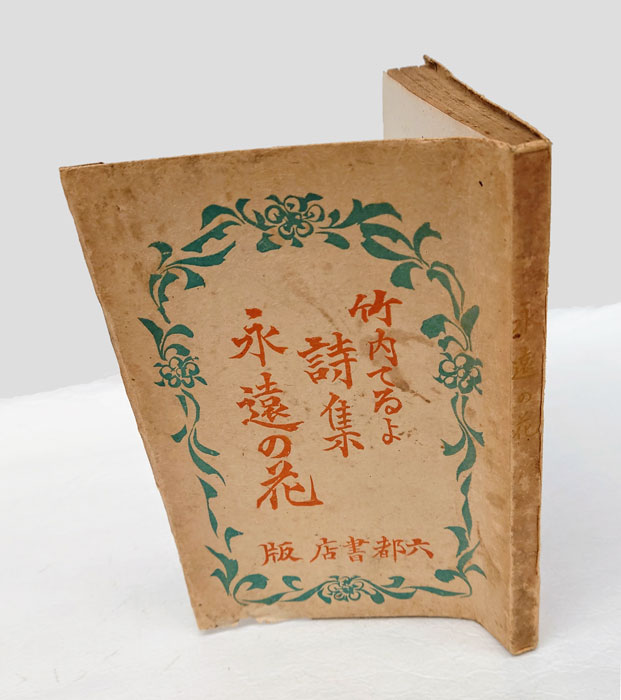 竹内てるよ
詩集
永遠の花
六都書店版
永遠の花